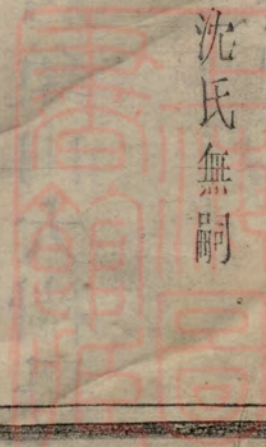 沈氏無嗣